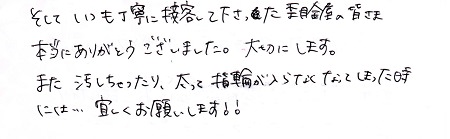 そして いつも丁寧に接客して下さった 貴金属の皆さま
本当にありがとうございました。大切にします。
また 汚しちゃったり、太って指輪が入らなくなってしまった時
には… 宜しくお願いします!!